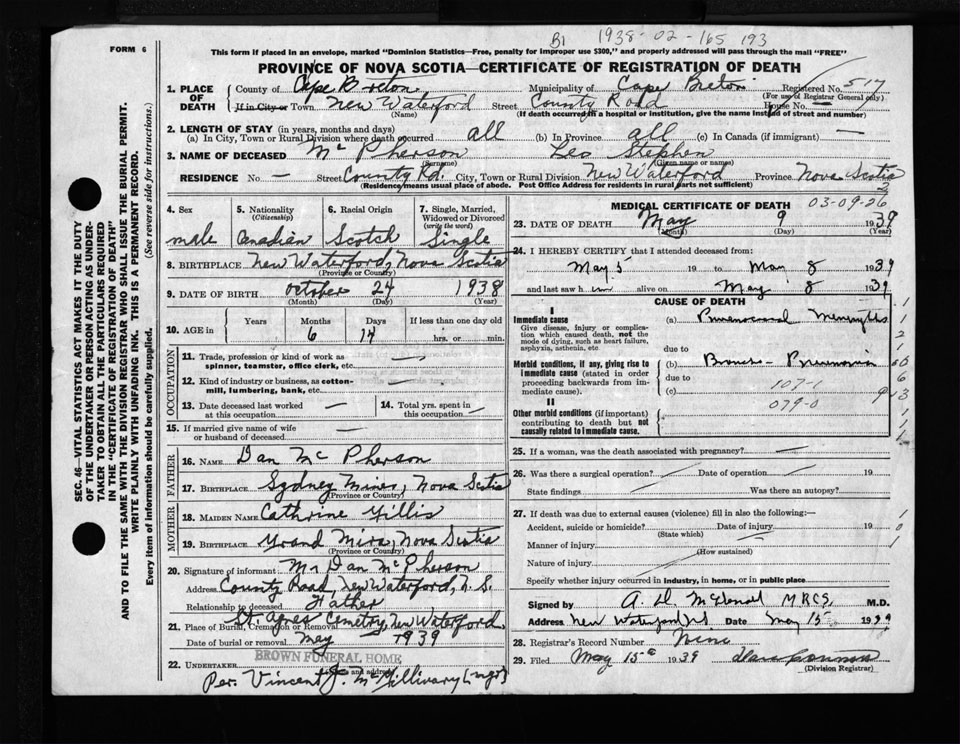 B1 1938-02-165 193
FORM 6
This form if placed in an envelope, marked "Dominion Statistics—Free, penalty for improper use $300," and properly addressed will pass through the mail "FREE"
PROVINCE OF NOVA SCOTIA—CERTIFICATE OF REGISTRATION OF DEATH
1. PLACE OF DEATH County of Cape Breton Municipality of Cape Breton Registered No. 517
(For use of Registrar General only)
If in City or Town, New Waterford Street County Road House No. —
(Name) (If death occurred in a hospital or institution, give the name instead of street and number)
2. LENGTH OF STAY (in years, months and days)
(a) In City, Town or Rural Division where death occurred all (b) In Province all (c) In Canada (if immigrant) —
3. NAME OF DECEASED McPherson Leo Stephen
(Surname) (Given name or names)
RESIDENCE No. — Street County Rd. City, Town or Rural Division New Waterford Province Nova Scotia
(Residence means usual place of abode. Post Office Address for residents in rural parts not sufficient)
4. Sex male
5. Nationality (Citizenship) Canadian
6. Racial Origin Scotch
7. Single, Married, Widowed or Divorced (write the word) Single
8. BIRTHPLACE New Waterford, Nova Scotia
(Province or Country)
9. DATE OF BIRTH October 24 1938
(Month) (Day) (Year)
10. AGE in Years Months 6 Days 14 If less than one day old hrs. or min.
OCCUPATION
11. Trade, profession or kind of work as spinner, teamster, office clerk, etc. —
12. Kind of industry or business, as cotton-mill, lumbering, bank, etc. —
13. Date deceased last worked at this occupation —
14. Total yrs. spent in this occupation —
15. If married give name of wife or husband of deceased —
FATHER
16. NAME Dan McPherson
17. BIRTHPLACE Sydney Mines, Nova Scotia
(Province or Country)
MOTHER
18. MAIDEN NAME Cathrine Gillis
19. BIRTHPLACE Grand Mira, Nova Scotia
(Province or Country)
20. Signature of informant Mr Dan McPherson
Address County Road, New Waterford, N.S.
Relationship to deceased Father
21. Place of Burial, Cremation or Removal St. Agnes Cemetry, New Waterford
Date of burial or removal May 1939
BROWN FUNERAL HOME
22. UNDERTAKER
Per. Vincent J. McGillivary (mgr)
MEDICAL CERTIFICATE OF DEATH
03-09-26
23. DATE OF DEATH May 9 1939
(Month) (Day) (Year)
24. I HEREBY CERTIFY that I attended deceased from:
May 5 19 to May 8 1939
and last saw him alive on May 8 1939
CAUSE OF DEATH
I
Immediate cause
Give disease, injury or complication which caused death, not the mode of dying, such as heart failure, asphyxia, asthenia, etc.
(a) Pneumococcal Meningitis
due to
Morbid conditions, if any, giving rise to immediate cause (stated in order proceeding backwards from immediate cause).
(b) Broncho-Pneumonia
due to 107-1
(c) 079-0
II
Other morbid conditions (if important) contributing to death but not causally related to immediate cause.
25. If a woman, was the death associated with pregnancy? —
26. Was there a surgical operation? Date of operation 19
State findings Was there an autopsy?
27. If death was due to external causes (violence) fill in also the following:—
Accident, suicide or homicide? Date of injury 19
(State which)
Manner of injury
(How sustained)
Nature of injury
Specify whether injury occurred in industry, in home, or in public place
Signed by M.R.C.S. M.D.
Address New Waterford N.S Date May 15 1939
28. Registrar's Record Number
29. Filed May 15th 1939
(Division Registrar)
SEC. 46—VITAL STATISTICS ACT MAKES IT THE DUTY OF THE UNDERTAKER OR PERSON ACTING AS UNDERTAKER TO OBTAIN ALL THE PARTICULARS REQUIRED IN THE "CERTIFICATE OF REGISTRATION OF DEATH" AND TO FILE THE SAME WITH THE DIVISION REGISTRAR WHO SHALL ISSUE THE BURIAL PERMIT.
WRITE PLAINLY WITH UNFADING INK. THIS IS A PERMANENT RECORD.
Every item of information should be carefully supplied. (See reverse side for instructions.)